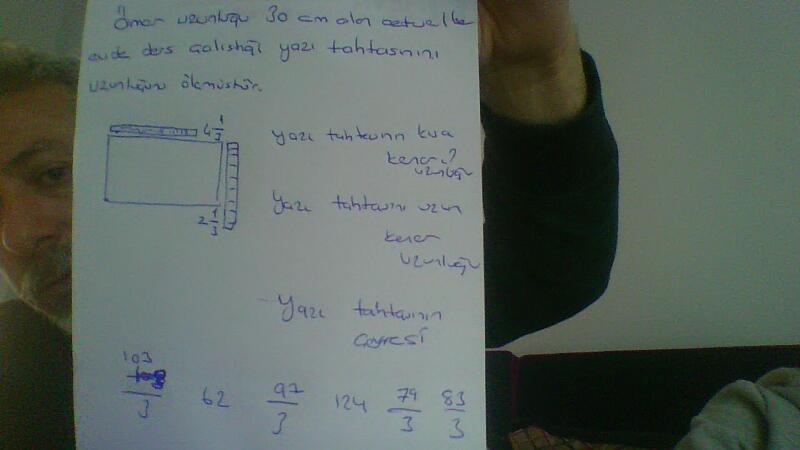 Ömer uzunluğu 30 cm olan cetvel ile
evde ders çalıştığı yazı tahtasının
uzunluğunu ölçmüştür.
4 1/3
yazı tahtasının kısa
kenar?
uzunluğu
2 1/3
Yazı tahtasını uzun
kenar
uzunluğu
- Yazı tahtasının
çevresi
103/3 62 97/3 124 79/3 83/3